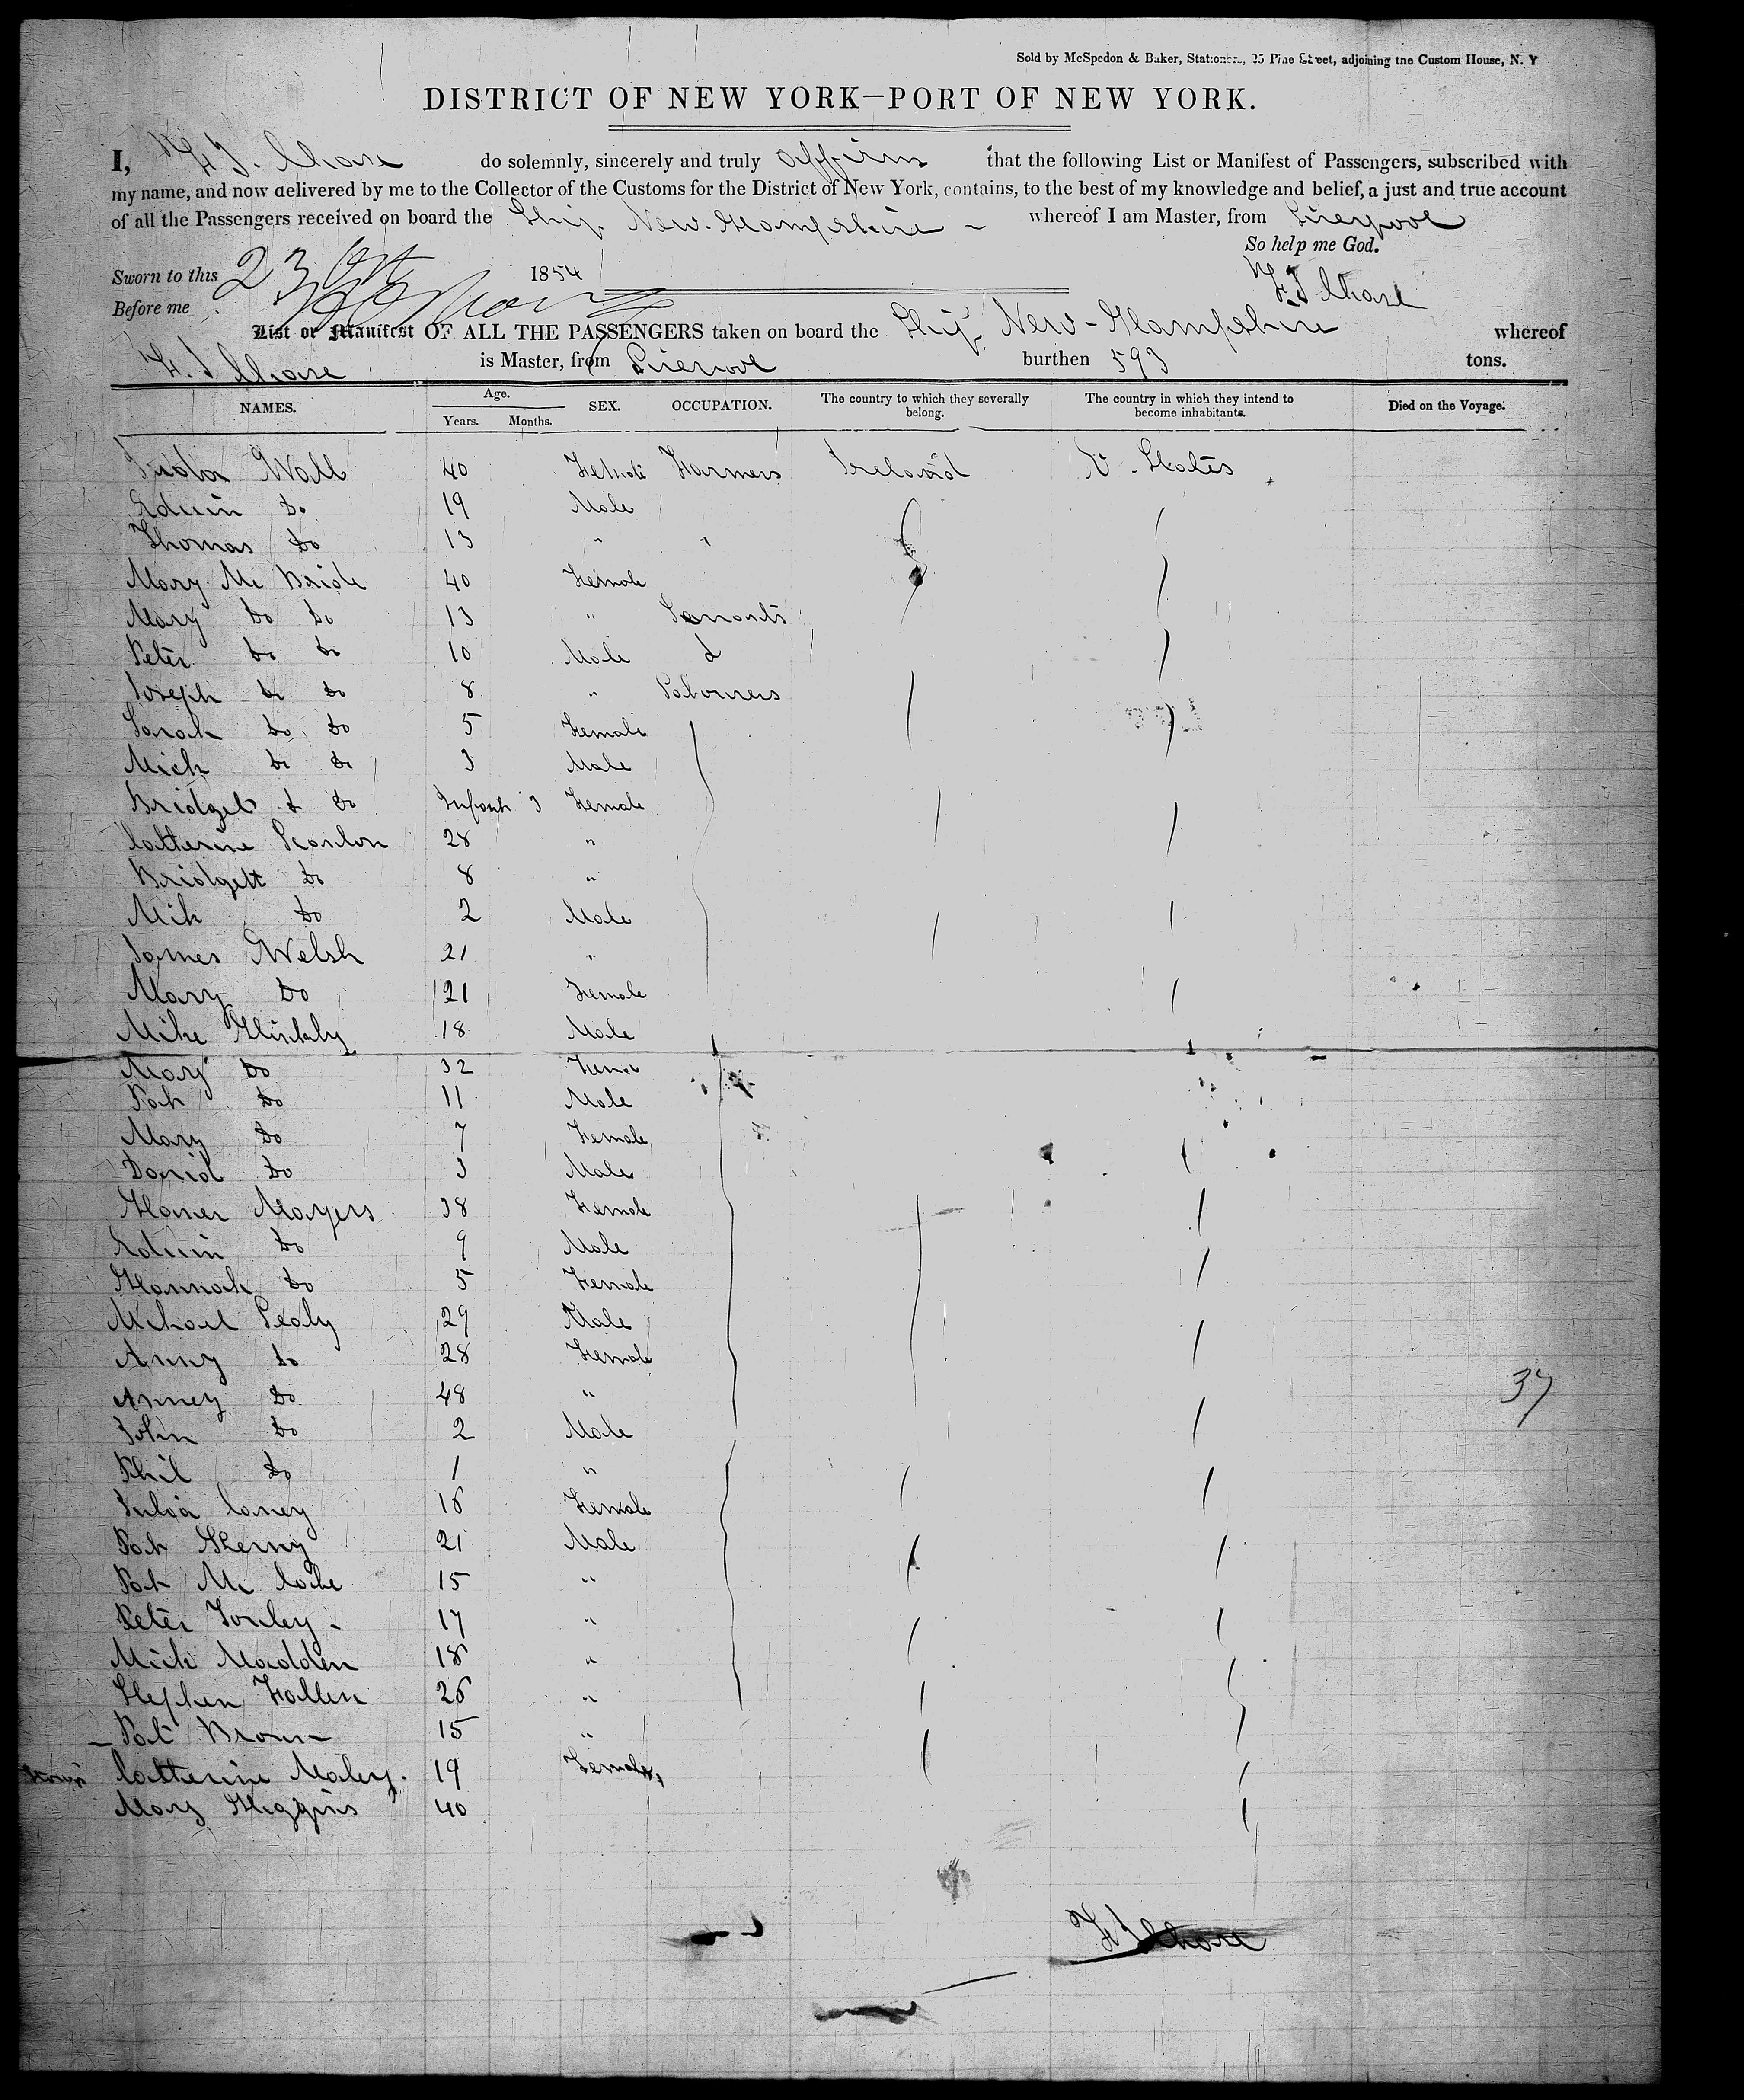 Sold by McSpedon & Baker, Stationers, 25 Pine Street, adjoining the Custom House, N. Y
DISTRICT OF NEW YORK—PORT OF NEW YORK.
I, Chase do solemnly, sincerely and truly affirm that the following List or Manifest of Passengers, subscribed with
my name, and now delivered by me to the Collector of the Customs for the District of New York, contains, to the best of my knowledge and belief, a just and true account
of all the Passengers received on board the Ship New-Hampshire whereof I am Master, from Liverpool
So help me God.
Sworn to this 23 Oct 1854
Chase
Before me
List or Manifest OF ALL THE PASSENGERS taken on board the Ship New-Hampshire whereof
Chase is Master, from Liverpool burthen 593 tons.
NAMES. Age. Years. Months. SEX. OCCUPATION. The country to which they severally belong. The country in which they intend to become inhabitants. Died on the Voyage.
Wall 40 Female Farmers Ireland U. States
Edwin Do 19 Male
Thomas Do 13 " "
Mary Mc Bride 40 Female
Mary Do Do 13 " Servants
Peter Do Do 10 Male d
Joseph Do Do 8 " Labourers
Sarah Do Do 5 Female
Mich Do Do 3 Male
Bridget d Do Infant 3 Female
Catherine Scanlon 28 "
Bridgett Do 8 "
Mih Do 2 Male
James Welsh 21 "
Mary Do 21 Female
Mike 18 Male
Mary Do 32
Pat Do 11 Male
Mary Do 7 Female
David Do 3 Male
Mayers 38 Female
Edwin Do 9 Male
Hannah Do 5 Female
Mihael Pealy 29 Male
Anny Do 28 Female
Anney Do 48 "
37
John Do 2 Male
Phil Do 1 "
Julia Caney 16 Female
Pat 21 Male
Pat Mc Cabe 15 "
Peter 17 "
Mick Madden 18 "
Stephen Fallen 26 "
Pat Brown 15 "
Catherine Maley. 19 Female
Mary Higgins 40
Chase